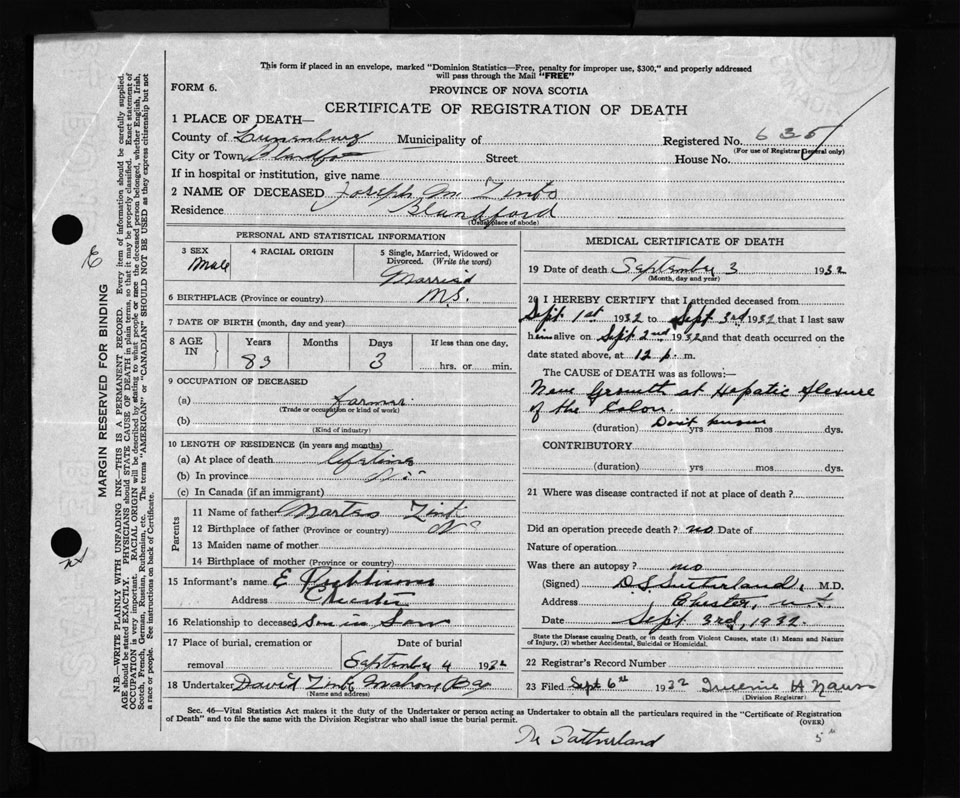 This form if placed in an envelope, marked "Dominion Statistics—Free, penalty for improper use, $300," and properly addressed
will pass through the Mail "FREE"
FORM 6.
PROVINCE OF NOVA SCOTIA
CERTIFICATE OF REGISTRATION OF DEATH
1 PLACE OF DEATH—
County of Lunenburg Municipality of
Registered No. 635
(For use of Registrar General only)
City or Town Street House No.
If in hospital or institution, give name
2 NAME OF DECEASED Joseph Zink
Residence Blandford
(Usual place of abode)
PERSONAL AND STATISTICAL INFORMATION
3 SEX Male
4 RACIAL ORIGIN
5 Single, Married, Widowed or
Divorced. (Write the word)
Married
6 BIRTHPLACE (Province or country) N.S.
7 DATE OF BIRTH (month, day and year)
8 AGE IN
Years Months Days If less than one day,
83 3 hrs. or min.
9 OCCUPATION OF DECEASED
(a) farmer
(Trade or occupation or kind of work)
(b)
(Kind of industry)
10 LENGTH OF RESIDENCE (in years and months)
(a) At place of death lifetime
(b) In province
(c) In Canada (if an immigrant)
Parents
11 Name of father Zink
12 Birthplace of father (Province or country) NS
13 Maiden name of mother
14 Birthplace of mother (Province or country)
15 Informant's name E
Address Chester
16 Relationship to deceased Son in Law
17 Place of burial, cremation or Date of burial
removal September 4 1932
18 Undertaker David Zink Mahone Bay
(Name and address)
MEDICAL CERTIFICATE OF DEATH
19 Date of death September 3 1932
(Month, day and year)
20 I HEREBY CERTIFY that I attended deceased from
Sept 1st 1932 to Sept. 3rd 1932 that I last saw
him alive on Sept 2nd 1932 and that death occurred on the
date stated above, at 12 p. m.
The CAUSE OF DEATH was as follows:—
New Growth at Hepatic flexure
of the Colon.
(duration) Don't know yrs mos dys.
CONTRIBUTORY
(duration) yrs mos dys.
21 Where was disease contracted if not at place of death?
Did an operation precede death? no Date of
Nature of operation
Was there an autopsy? no
(Signed) D.S. Sutherland, M.D.
Address Chester, N.S.
Date Sept. 3rd, 1932.
State the Disease causing Death, or in death from Violent Causes, state (1) Means and Nature
of Injury, (2) whether Accidental, Suicidal or Homicidal.
22 Registrar's Record Number
23 Filed Sept 6th 1932 H
(Division Registrar)
Sec. 46—Vital Statistics Act makes it the duty of the Undertaker or person acting as Undertaker to obtain all the particulars required in the "Certificate of Registration
of Death" and to file the same with the Division Registrar who shall issue the burial permit.
(OVER)
Sutherland
MARGIN RESERVED FOR BINDING
N.B.—WRITE PLAINLY WITH UNFADING INK—THIS IS A PERMANENT RECORD. Every item of information should be carefully supplied.
AGE should be stated EXACTLY. PHYSICIANS should STATE CAUSE OF DEATH in plain terms, so that it may be properly classified. Exact statement of
OCCUPATION is very important. RACIAL ORIGIN will be described by stating to what people or race the deceased person belonged, whether English, Irish,
Scotch, French, German, Russian, Ruthenian, etc. The terms "AMERICAN" or "CANADIAN" SHOULD NOT BE USED as they express citizenship but not
a race or people. See instructions on back of Certificate.